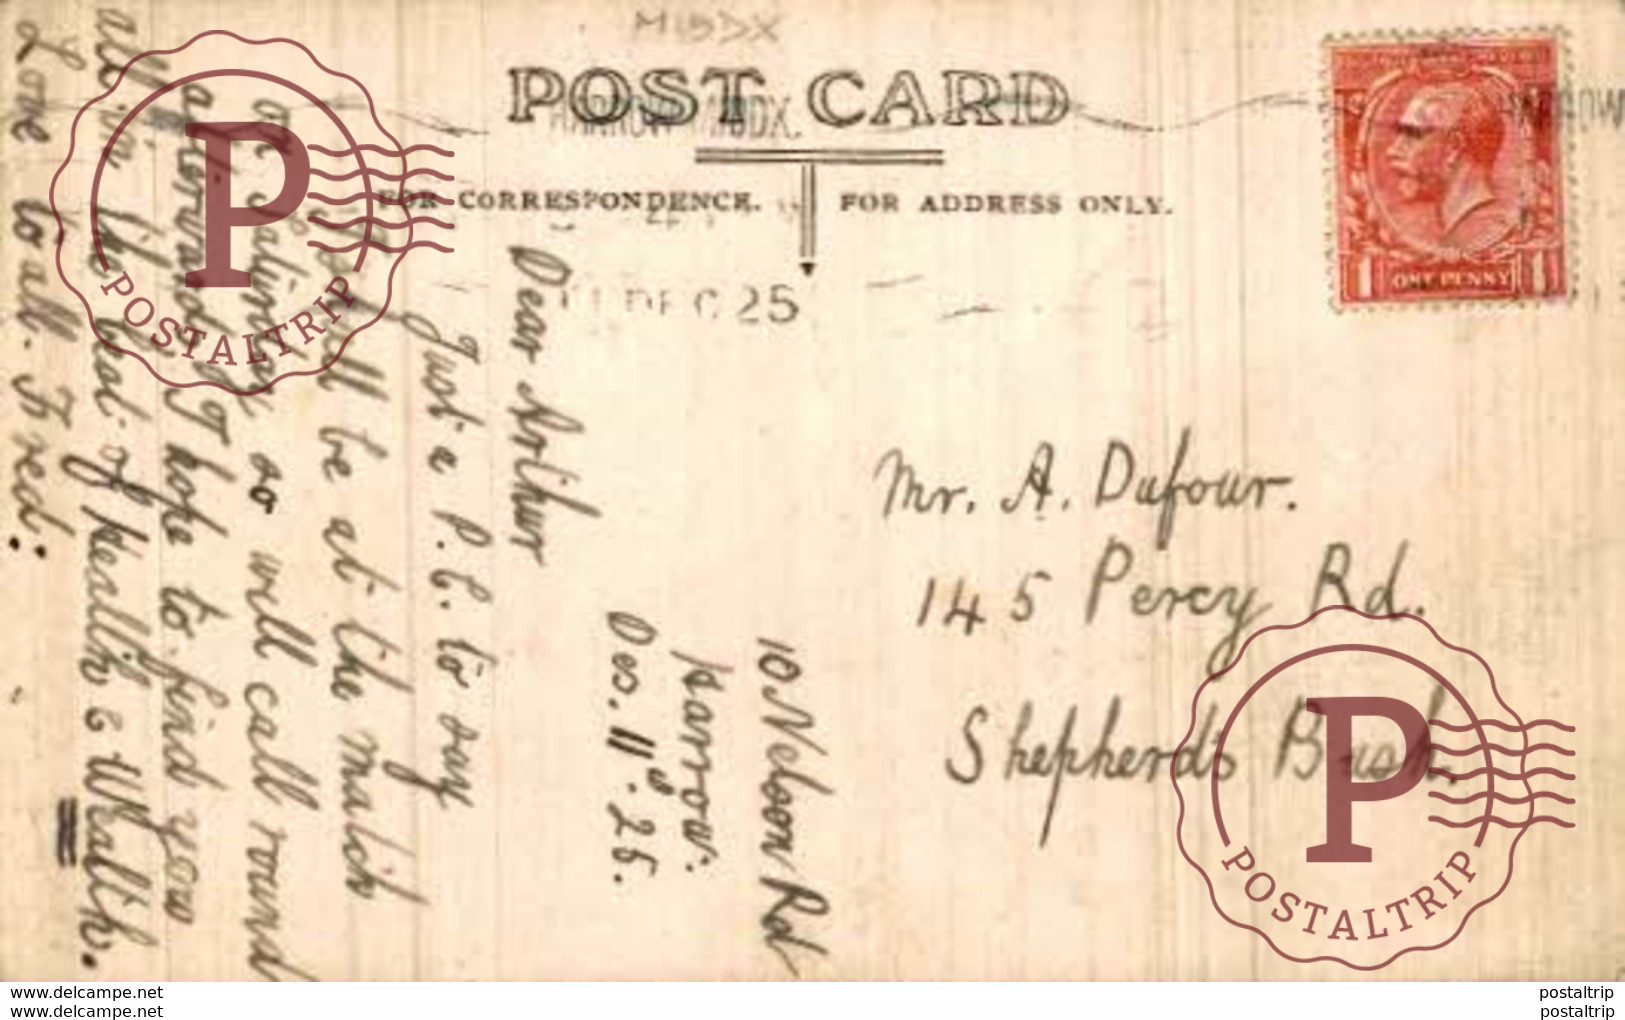 MIDDX
POST CARD
HARROW MIDDX.
FOR CORRESPONDENCE. FOR ADDRESS ONLY.
11 DEC 25
HARROW
1 ONE PENNY 1
Mr. A. Dufour.
145 Percy Rd.
Shepherds Bush.
10 Nelson Rd
Harrow.
Dec. 11. 25.
Dear Arthur
Just a P.C. to say
I shall be at the match
on Saturday so will call round
afterwards. I hope to find you
all in the best of health & Wealth.
Love to all. Fred:
P
POSTALTRIP
P
POSTALTRIP
www.delcampe.net
www.delcampe.net
postaltrip
postaltrip